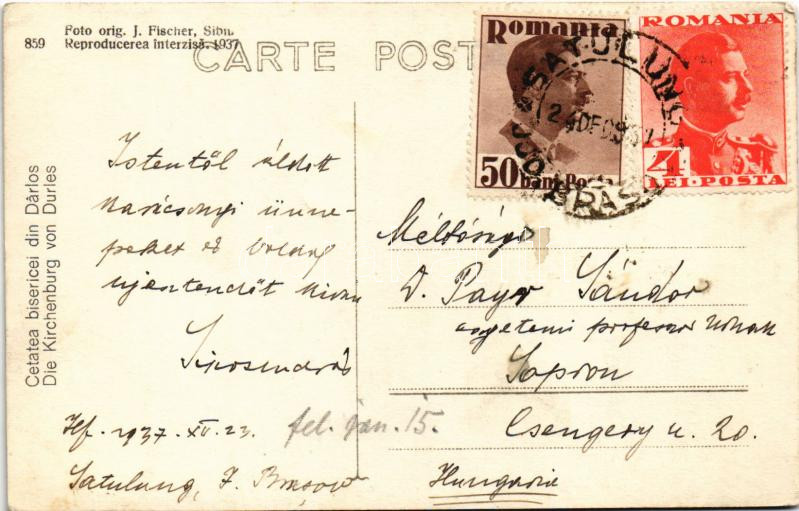 859
Foto orig. J. Fischer, Sibiu.
Reproducerea interzisă. 1937
CARTE POST
Romania
50 bani. Posta
ROMANIA
4
LEI·POSTA
SATULUNG
BRAȘOV
Cetatea bisericei din Dârlos
Die Kirchenburg von Durles
Istentől áldott
karácsonyi ünne-
peket és boldog
újesztendőt kíván
1937. XII. 23.
Satulung, J. Brașov
fel. jan. 15.
Méltóságos
D. Payer Sándor
egyetemi professor úrnak
Sopron
Csengery u. 20.
Hungaria